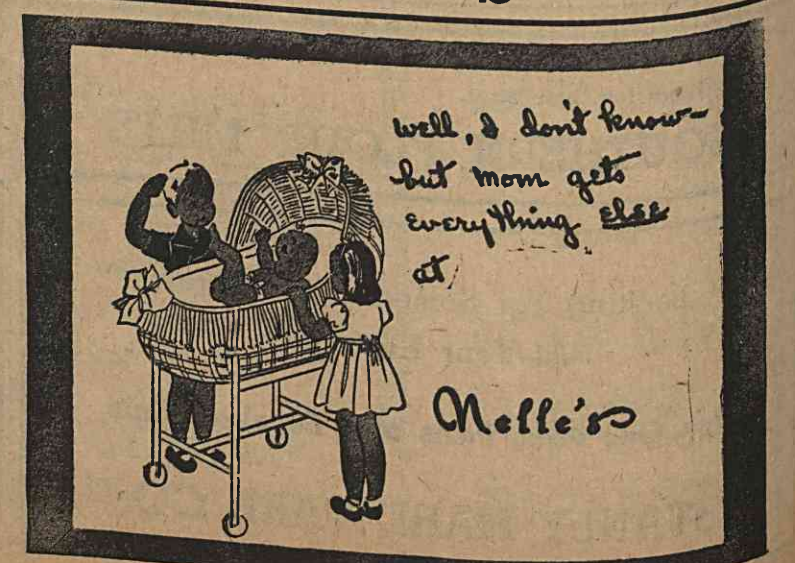 Well, I don't know-
but Mom gets
everything else
at
Nelle's